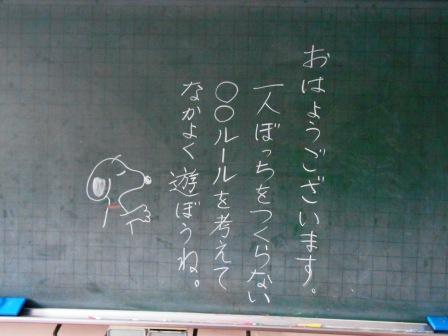 おはようございます。
一人ぼっちをつくらない
○○ルールを考えて
なかよく遊ぼうね。